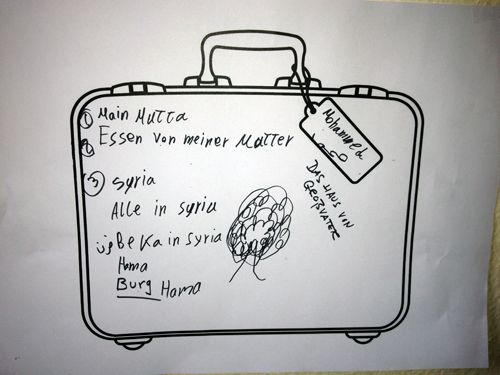 ① Main Mutta
② Essen von meiner Matter
③ syria
Alle in syria
in syria
Hama
Burg Hama
Mohammed
DAS HAUS VON
GROßVATER